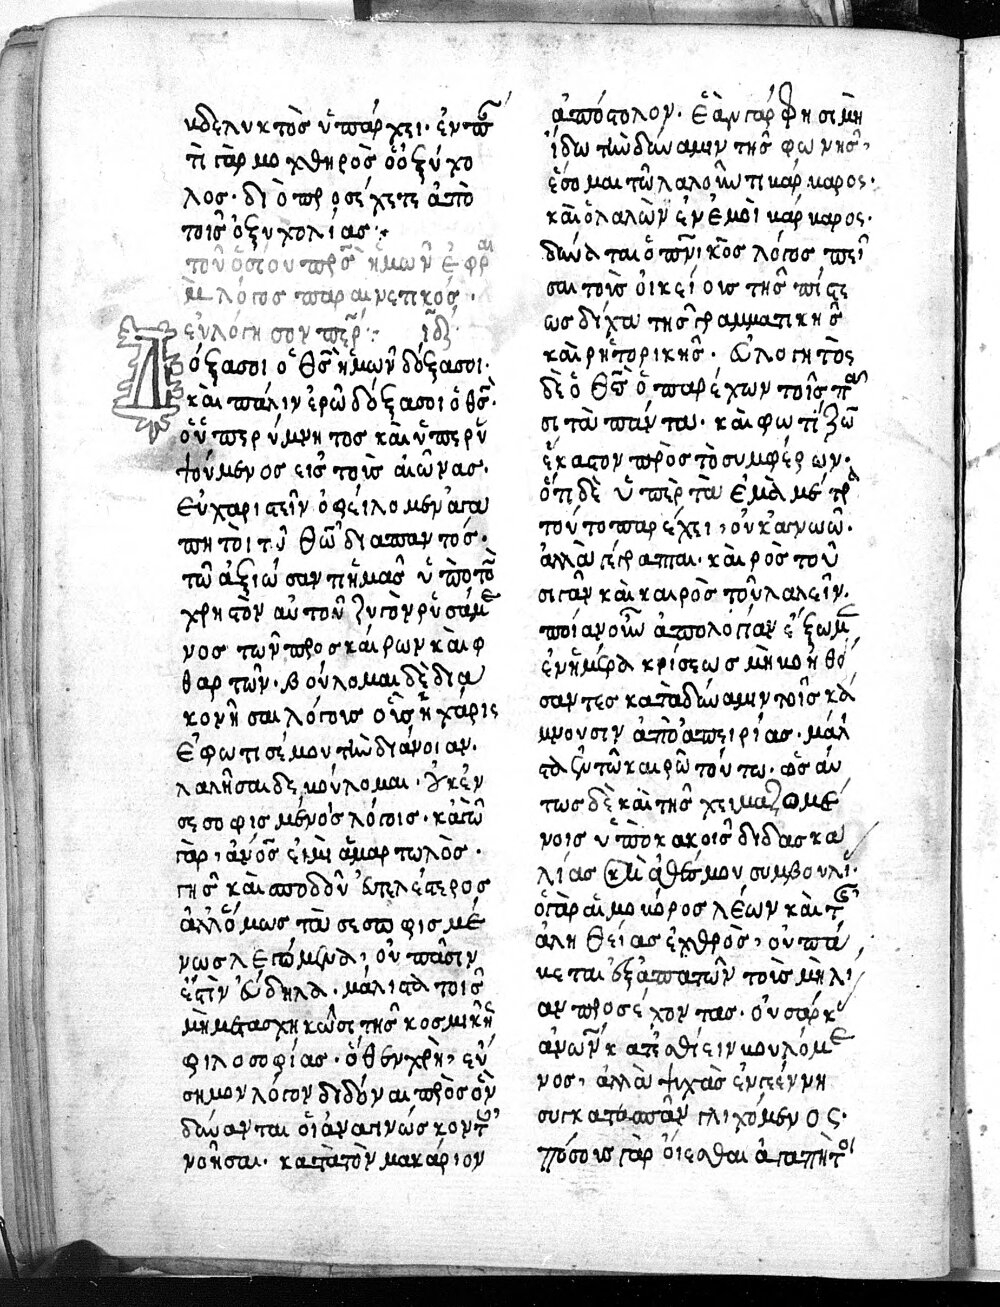 βδελυκτὸς ὑπάρχει· ἐν πᾶ
τὶ γὰρ μοχθηρὸς ὁ ὀξύχο
λος· διὸ προσέχετε ἀπὸ
τοῖς ὀξυχολίας:·
τοῦ ὁσίου πρς ἡμῶν ἐφραὶ
μ λόγος παραινετικός·
εὐλόγησον περ:·
Δόξα σοι ὁ θς ἡμῶν δόξα σοι·
καὶ πάλιν ἐρῶ δόξα σοι ὁ θς·
ὁ ὑπερύμνητος καὶ ὑπερυ
ψούμενος εἰς τοὺς αἰῶνας·
Εὐχαριστεῖν ὀφείλομεν ἀγα
πητοὶ τῶ θῶ διαπαντός·
τῶ ἀξιώσαντι ἡμᾶς ὑπὸ τὸ
χρηστὸν αὐτοῦ ζυγὸν ῥυσάμε
νος τῶν προσκαίρων καὶ φ
θαρτῶν· βούλομαι δὲ δια
κονῆσαι λόγοις οἷς ἡ χάρις
ἐφώτισέ μου τὴν διάνοιαν·
λαλῆσαι δὲ βούλομαι· οὐκ ἐν
σεσοφισμένοις λόγοις· κἀγὼ
γὰρ ἄνος εἰμὶ ἁμαρτωλὸς·
γῆς καὶ σποδοῦ εὐτελέστερος
ἀλλ' ὅμως τὰ σεσοφισμέ
νως λεγόμενα, οὐ πᾶσιν
ἐστὶν εὔδηλα· μάλιστα τοῖς
μὴ μετασχηκῶσι τῆς κοσμικῆς
φιλοσοφίας· ὅθεν χρὴ, εὔ
σημον λόγον διδόναι πρὸς ὃν
δύνανται οἱ ἀναγινώσκοντες
νοῆσαι· κατὰ τὸν μακάριον
ἀπόστολον· Ἐὰν γάρ φησι μὴ
ἴδω τὴν δύναμιν τῆς φωνῆς,
ἔσομαι τῶ λαλοῦντι βάρβαρος·
καὶ ὁ λαλῶν ἐν ἐμοὶ βάρβαρος·
δύναται ὁ πνικὸς λόγος πεῖ
σαι τοὺς οἰκείους τῆς πίστε
ως δίχα τῆς γραμματικῆς
καὶ ῥητορικῆς· εὐλογητὸς
δὲ ὁ θς ὁ παρέχων τοῖς πᾶ
σι τὰ πάντα· καὶ φωτίζων
ἕκαστον πρὸς τὸ συμφέρων·
ὅτι δὲ ὑπὲρ τὰ ἐμὰ μέτρα
τοῦτο παρέχει, οὐκ ἀγνοῶ·
ἀλλὰ γέγραπται· καιρὸς τοῦ
σιγᾶν καὶ καιρὸς τοῦ λαλεῖν·
ποίαν οὖν ἀπολογίαν ἕξωμεν
ἐν ἡμέρα κρίσεως μὴ βοηθή
σαντες κατὰ δύναμιν τοῖς κά
μνουσιν ἀπὸ ἀπειρίας· μάλι
στα ἐν τῶ καιρῶ τούτω· ὡσαύ
τως δὲ καὶ τῆς χειμαζομέ
νοις ὑπὸ κακοῖς διδασκα
λίας καὶ ἀθέσμου συμβουλί·
ὁ γὰρ αἱμοβόρος λέων καὶ τῆς
ἀληθείας ἐχθρὸς, οὐ παύ
εται ἐξαπατῶν τοῖς μὴ λί
αν προσέχοντας· οὐ σάρκ
ἀνων κατεσθίειν βουλόμε
νος, ἀλλὰ ψυχὰς ἐν γεέννη
συγκατασπᾶν γλιχόμενος·
πόσους γὰρ οἴεσθαι ἀγαπητοὶ